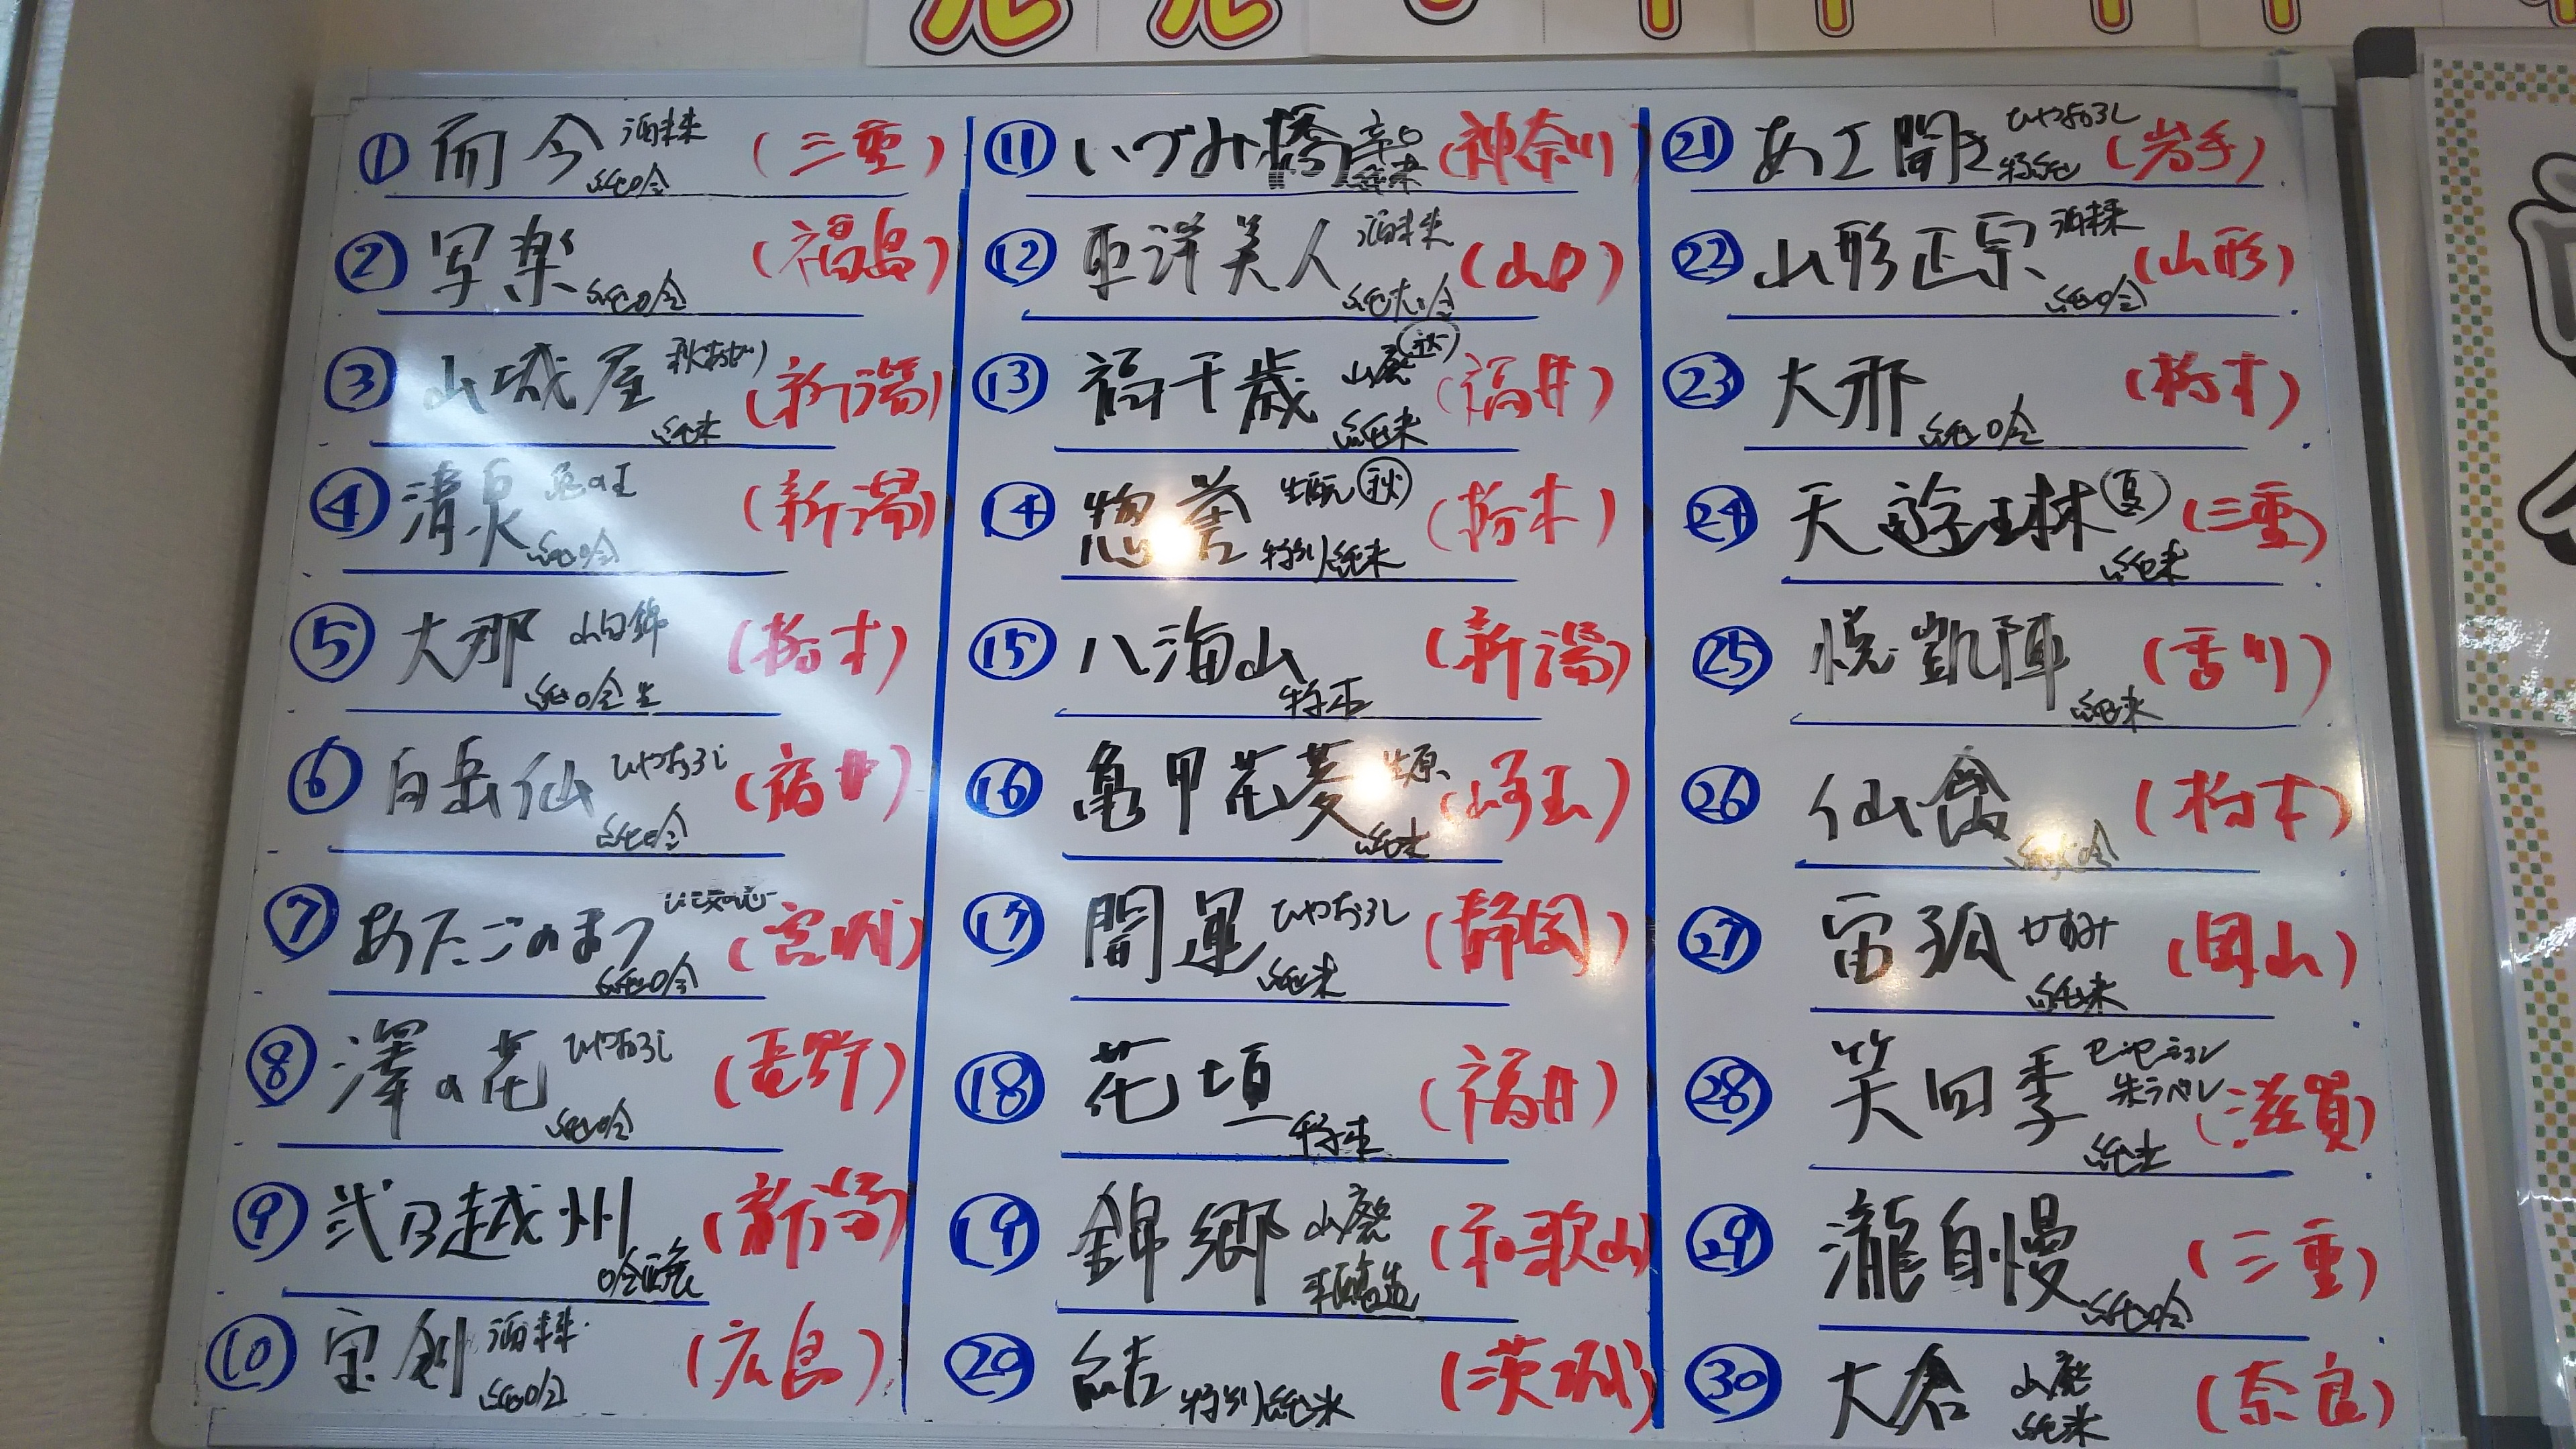 ① 而今 酒未来 純吟 (三重)
② 写楽 純吟 (福島)
③ 山城屋 秋あがり 純米 (新潟)
④ 清泉 亀の王 純吟 (新潟)
⑤ 大那 山田錦 純吟生 (栃木)
⑥ 白岳仙 ひやおろし 純吟 (福井)
⑦ あたごのまつ 純吟 (宮城)
⑧ 澤の花 ひやおろし 純吟 (長野)
⑨ 弐乃越州 (新潟)
⑩ 宝剣 酒未来 純吟 (広島)
⑪ いづみ橋 辛口 純米 (神奈川)
⑫ 東洋美人 酒未来 純大吟 (山口)
⑬ 福千歳 山廃 (秋) 純米 (福井)
⑭ 惣誉 生酛 秋 特別純米 (栃木)
⑮ 八海山 特本 (新潟)
⑯ 亀甲花菱 生原 純米 (埼玉)
⑰ 開運 ひやおろし 純米 (静岡)
⑱ 花垣 特本 (福井)
⑲ 錦郷 山廃 (和歌山)
⑳ 結 特別純米 (茨城)
㉑ あさ開き ひやおろし 特純 (岩手)
㉒ 山形正宗 酒未来 純吟 (山形)
㉓ 大那 純吟 (栃木)
㉔ 天遊琳 (夏) 純米 (三重)
㉕ 悦凱陣 純米 (香川)
㉖ 仙禽 (栃木)
㉗ 宙狐 かすみ 純米 (岡山)
㉘ 笑四季 センセーション 朱ラベル 純米 (滋賀)
㉙ 瀧自慢 純吟 (三重)
㉚ 大倉 山廃 純米 (奈良)